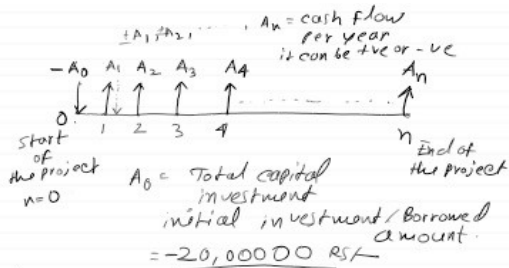 ±A₁, ±A₂, ......., Aₙ = cash flow
per year
it can be +ve or -ve
-A₀ A₁ A₂ A₃ A₄ Aₙ
0 1 2 3 4 n
start of the project n=0
End of the project
A₀ = Total capital
investment
initial investment/Borrowed
amount.
= -20,00000 RS/-